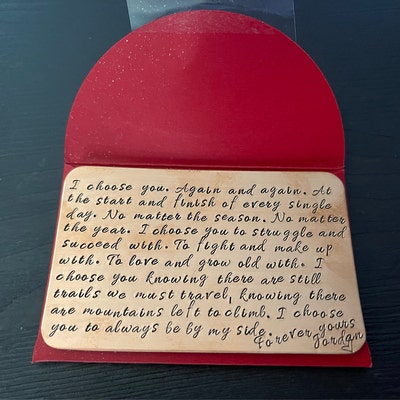 I choose you. Again and again. At
the start and finish of every single
day. No matter the season. No matter
the year. I choose you to struggle and
succeed with. To fight and make up
with. To love and grow old with. I
choose you knowing there are still
trails we must travel, knowing there
are mountains left to climb. I choose
you to always be by my side.
Forever yours
Jordan